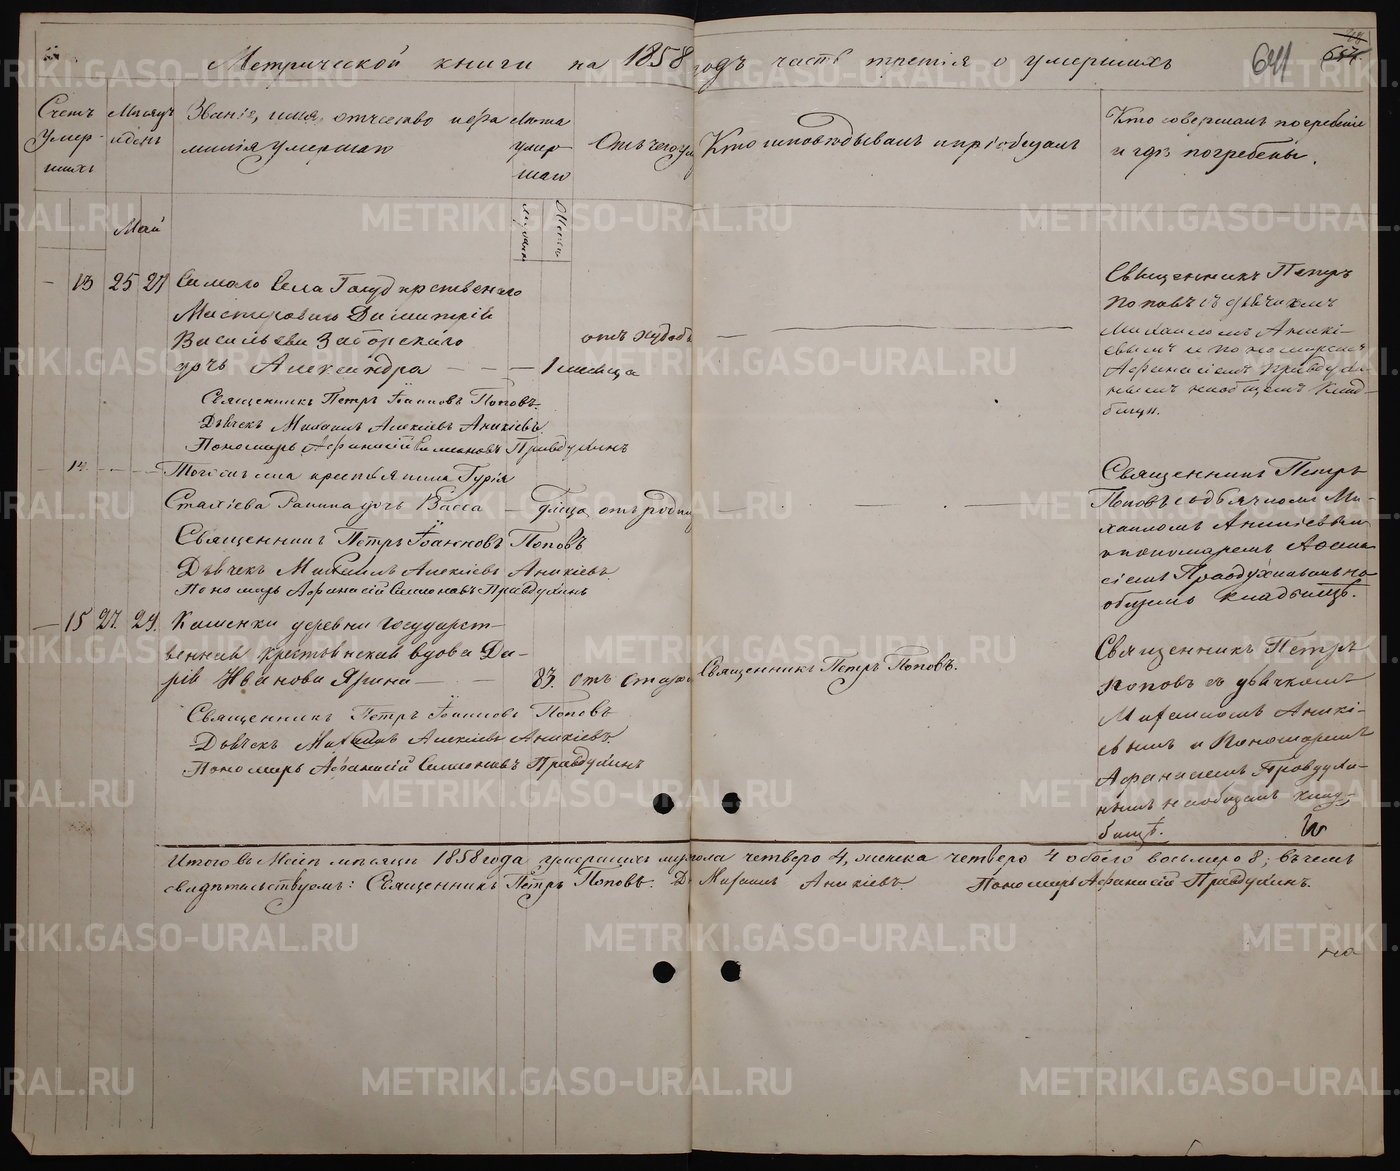 Метрической книги на 1858 годъ часть третiя о умершихъ
641
Счетъ умер-
шихъ
Мѣсяцъ
и день
Званiе, имя, отчество и фа
милiя умершаго
Лѣта
умер-
шаго
Отъ чего ум
Кто исповѣдывалъ и прiобщалъ
Кто совершалъ погребенiе
и гдѣ погребены.
Май
13 25 27
Самаго Села Государственнаго
Мастероваго Димитрiя
Васильева
дочь Александра — — — 1 мѣсяца
отъ худоб
Священникъ Петръ Iоанновъ Поповъ.
Дьячекъ Михаилъ Алексѣевъ Аникiевъ.
Пономарь Афанасiй Симоновъ Правдухинъ
Священникъ Петръ
Поповъ съ дьячкомъ
Михаиломъ Аникi-
евымъ и пономаремъ
Афанасiемъ Правдухи-
нымъ на общемъ клад-
бищѣ.
14.
Тогоже села крестьянина Гурiя
дочь Васса отъ родим
Священникъ Петръ Iоанновъ Поповъ
Дьячекъ Михаилъ Алексѣевъ Аникiевъ.
Пономарь Афанасiй Симоновъ Правдухинъ
Священникъ Петръ
Поповъ съ дьячкомъ Ми-
хаиломъ Аникiевымъ
и пономаремъ Афана
сiемъ Правдухинымъ на
общемъ кладбищѣ.
15 27. 29.
Каменки деревни государст-
венная крестьянская вдова Да-
рiя Иванова Ярина — — 83. отъ старо
Священникъ Петръ Поповъ.
Священникъ Петръ Iоанновъ Поповъ
Дьячекъ Михаилъ Алексѣевъ Аникiевъ.
Пономарь Афанасiй Симоновъ Правдухинъ
Священникъ Петръ
Поповъ съ дьячкомъ
Михаиломъ Аникi-
евымъ и Пономаремъ
Афанасiемъ Правдухи-
нымъ на общемъ клад-
бищѣ.
Итого въ Маiѣ мѣсяцѣ 1858 года умершихъ мужска четверо 4, женска четверо 4 обоего восьмеро 8; въ чемъ
свидѣтельствуемъ: Священникъ Петръ Поповъ. Д Михаилъ Аникiевъ. Пономарь Афанасiй Правдухинъ.
METRIKI.GASO-URAL.RU